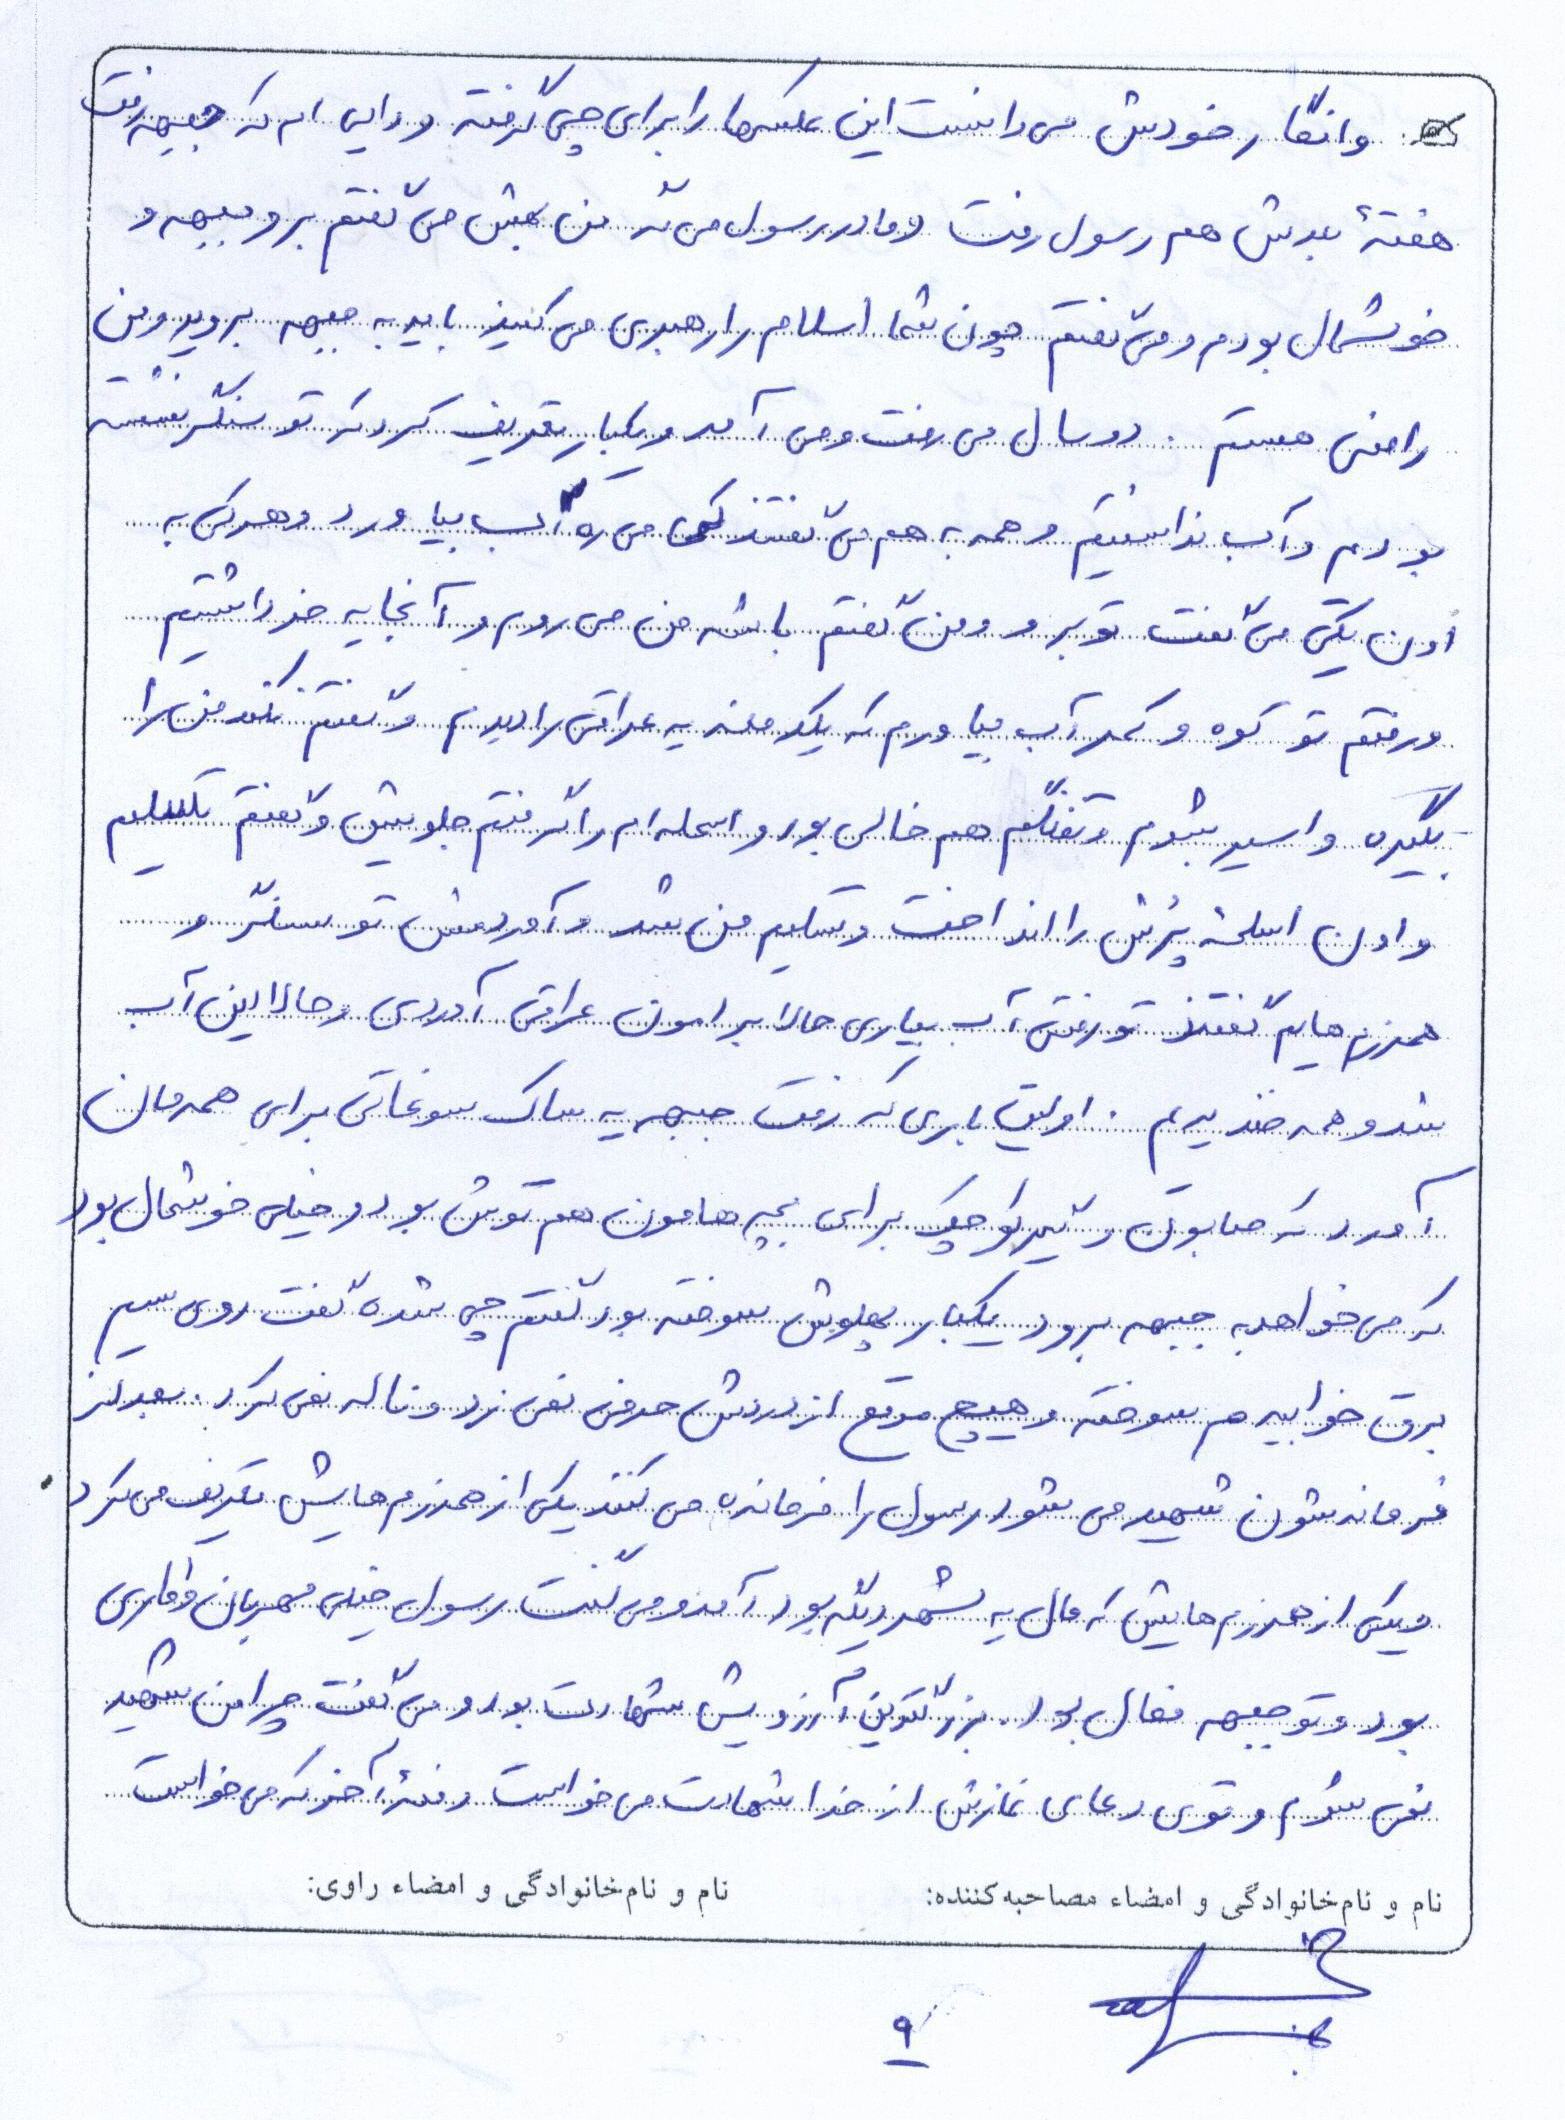 وانگار خودش می دانست این عکسها را برای چی گرفته و دایی ام که جبهه رفت
هفتهٔ بعدش هم رسول رفت و مادر رسول می شه من بهش می گفتم برو جبهه و
خوشحال بودم و می گفتم چون شما اسلام را رهبری می کنید باید به جبهه بروید و من
راضی هستم . دو سال می رفت و می آمد و یکبار تعریف کرد که تو سنگر نشسته
بودیم و آب نداشتیم و همه به هم می گفتند کی می ره آب بیاورد و هر کی به
اون یکی می گفت تو برو و من گفتم باشه من می روم و آنجا یه خر داشتیم
و رفتم تو کوه و کمر آب بیاورم که یکدفعه یه عراقی را دیدم و گفتم نکند من را
بگیره و اسیر بشوم و تفنگم هم خالی بود و اسلحه ام را گرفتم جلویش و گفتم تسلیم
و اون اسلحهٔ پرش را انداخت و تسلیم من شد و آوردمش تو سنگر و
همرزم هایم گفتند تو رفتی آب بیاری حالا برامون عراقی آوردی و حالا این آب
شد و همه خندیدیم . اولین باری که رفت جبهه یه ساک سوغاتی برای همه مان
آورد که صابون و تیر کوچک برای بچه هامون هم توش بود و خیلی خوشحال بود
که می خواهد به جبهه برود یکبار پهلویش سوخته بود گفتم چی شده گفت روی سیم
برق خوابیدم سوخته و هیچ موقع از دردش حرفی نمی زد و ناله نمی کرد . بعد از
فرماندشون شهید می شود رسول را فرمانده می کنند یکی از همرزم هایش تعریف می کرد
و یکی از همرزم هایش که مال یه شهر دیگه بود آمد و می گفت رسول خیلی مهربان و اداری
بود و تو جبهه فعال بود . بزرگترین آرزویش شهادت بود و می گفت چرا من شهید
نمی شوم و توی دعای نمازش از خدا شهادت می خواست دفعهٔ آخر که می خواست
نام و نام خانوادگی و امضاء مصاحبه کننده: نام و نام خانوادگی و امضاء راوی:
۹